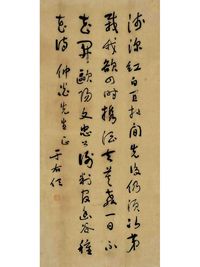 淺深紅白宜相間先後仍須次第
栽我欲四時攜酒去莫教一日不
花開歐陽文忠公謝判官幽谷種
花詩 仲 先生正 于右任